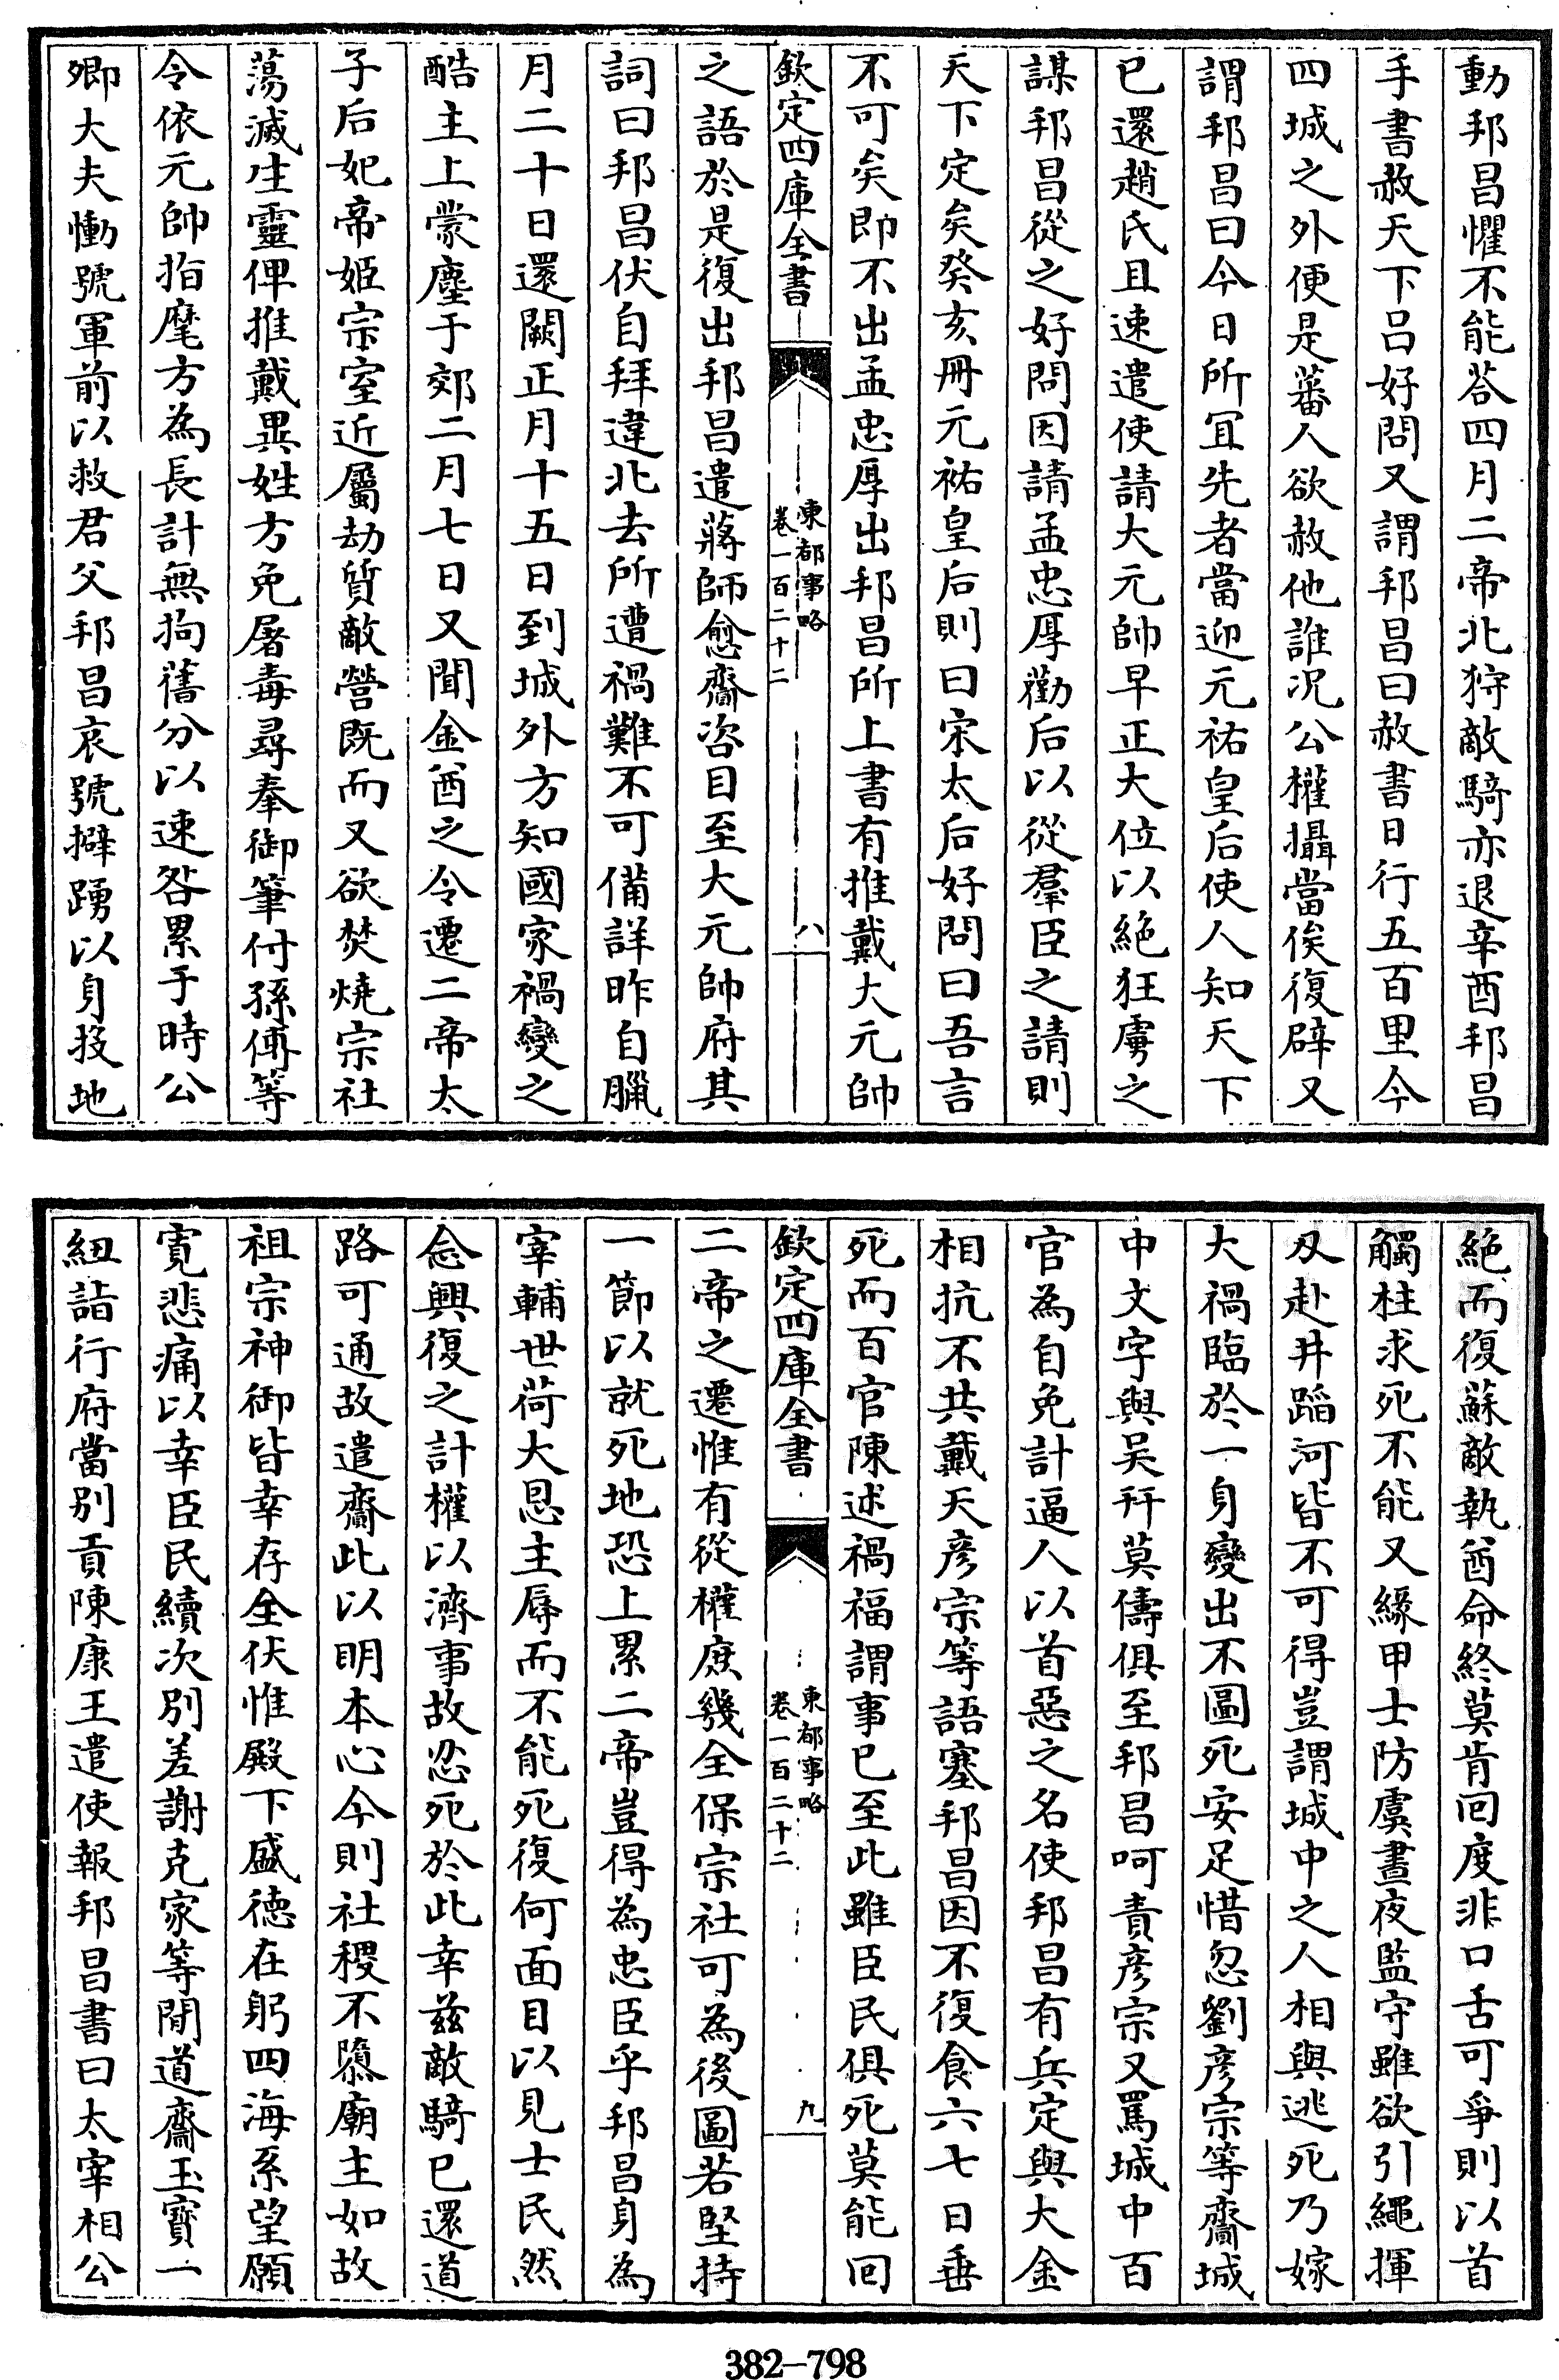 動邦昌懼不能荅四月二帝北狩敵騎亦退辛酉邦昌
手書赦天下吕好問又謂邦昌曰赦書日行五百里今
四城之外便是蕃人欲赦他誰况公權攝當俟復辟又
謂邦昌曰今日所冝先者當迎元祐皇后使人知天下
已還趙氏且速遣使請大元帥早正大位以絶狂虜之
謀邦昌從之好問因請孟忠厚勸后以從羣臣之請則
天下定矣癸亥冊元祐皇后則曰宋太后好問曰吾言
不可矣即不出孟忠厚出邦昌所上書有推戴大元帥
欽定四庫全書
東都事略
卷一百二十二
八
之語於是復出邦昌遣蔣師愈齎咨目至大元帥府其
詞曰邦昌伏自拜違北去所遭禍難不可備詳昨自臘
月二十日還闕正月十五日到城外方知國家禍變之
酷主上蒙塵于郊二月七日又聞金酋之令遷二帝太
子后妃帝姬宗室近屬劫質敵營既而又欲焚燒宗社
蕩滅生靈俾推戴異姓方免屠毒尋奉御筆付孫傅等
令依元帥指麾方為長計無拘舊分以速咎累于時公
卿大夫慟號軍前以救君父邦昌哀號擗踴以身投地
絶而復蘇敵執酋命終莫肯回度非口舌可爭則以首
觸柱求死不能又緣甲士防虞晝夜監守雖欲引繩揮
刄赴井蹈河皆不可得豈謂城中之人相與逃死乃嫁
大禍臨於一身變出不圖死安足惜忽劉彦宗等齎城
中文字與吳幵莫儔俱至邦昌呵責彦宗又罵城中百
官為自免計逼人以首惡之名使邦昌有兵定與大金
相抗不共戴天彦宗等語塞邦昌因不復食六七日垂
死而百官陳述禍福謂事已至此雖臣民俱死莫能回
欽定四庫全書
東都事略
卷一百二十二
九
二帝之遷惟有從權庶幾全保宗社可為後圖若堅持
一節以就死地恐上累二帝豈得為忠臣乎邦昌身為
宰輔世荷大恩主辱而不能死復何面目以見士民然
念興復之計權以濟事故忍死於此幸兹敵騎已還道
路可通故遣齎此以明本心今則社稷不隳廟主如故
祖宗神御皆幸存全伏惟殿下盛德在躬四海系望願
寛悲痛以幸臣民續次別差謝克家等間道齎玉寶一
紐詣行府當別貢陳康王遣使報邦昌書曰太宰相公
382—798